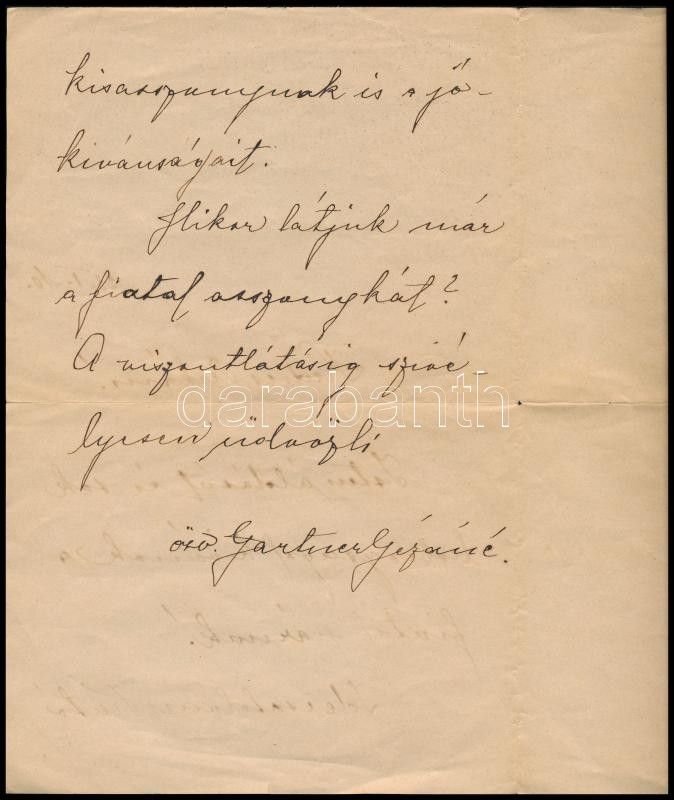 kisasszonynak is a jó-
kivánságait.
Mikor látjuk már
a fiatal asszonykát?
A viszontlátásig szivé
lyesen üdvözli
özv. Gartner Gézáné.
darabanth